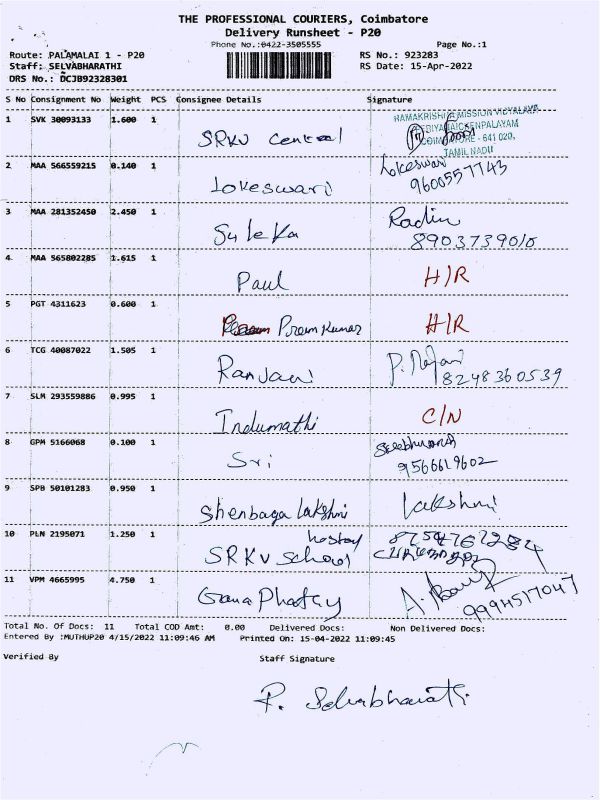 THE PROFESSIONAL COURIERS, Coimbatore
Delivery Runsheet - P20
Phone No.:0422-3505555 Page No.:1
Route: PALAMALAI 1 - P20 RS No.: 923283
Staff: SELVABHARATHI RS Date: 15-Apr-2022
DRS No.: DCJB92328301
S No Consignment No Weight PCS Consignee Details Signature
1 SVK 30093133 1.600 1 SRKV Central
RAMAKRISHNA MISSION VIDYALAYA
PERIYANAICKENPALAYAM
COIMBATORE - 641 020.
TAMIL NADU
2 MAA 566559215 0.140 1 Lokeswari Lokeswari
9600557743
3 MAA 281352450 2.450 1 Suleka
8903739010
4 MAA 565802285 1.615 1 Paul H/R
5 PGT 4311623 0.600 1 Prem Kumar H/R
6 TCG 40087022 1.505 1 Ranjani
8248360539
7 SLM 293559886 0.995 1 Indumathi C/N
8 GPM 5166068 0.100 1 Sri
9566619602
9 SPB 50101283 0.950 1 Shenbaga lakshmi lakshmi
10 PLN 2195071 1.250 1 SRKV School
11 VPM 4665995 4.750 1
9994517047
Total No. Of Docs: 11 Total COD Amt: 0.00 Delivered Docs: Non Delivered Docs:
Entered By :MUTHUP20 4/15/2022 11:09:46 AM Printed On: 15-04-2022 11:09:45
Verified By Staff Signature
P. Selvabharathi